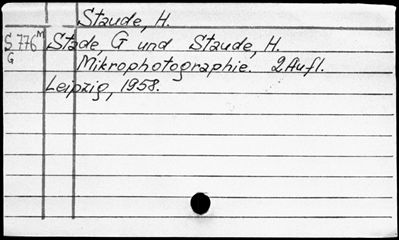 Staude, H.
S 776 M Stade, G und Staude, H.
G Mikrophotographie. 2 Aufl.
Leipzig, 1958.